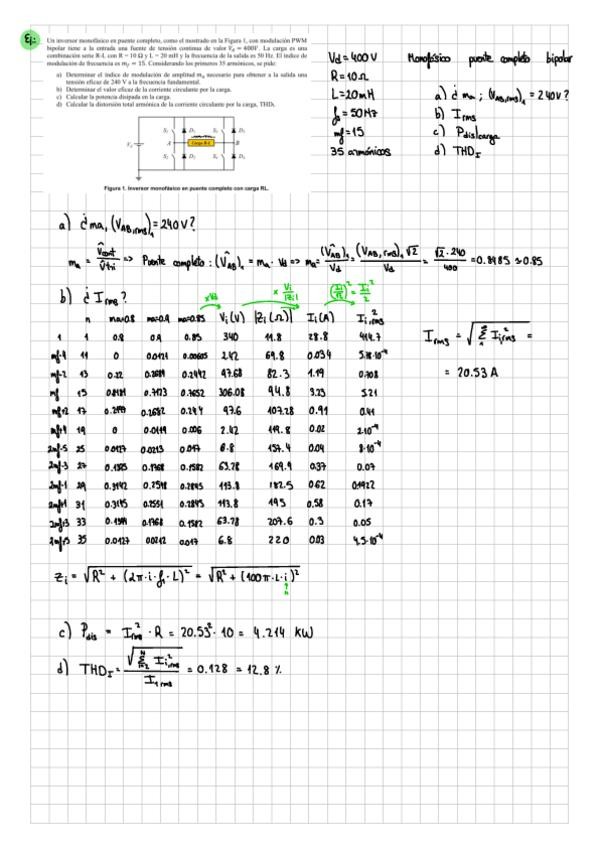 Ej:
Un inversor monofásico en puente completo, como el mostrado en la Figura 1, con modulación PWM
bipolar tiene a la entrada una fuente de tensión continua de valor Vd = 400V. La carga es una
combinación serie R-L con R = 10 Ω y L = 20 mH y la frecuencia de la salida es 50 Hz. El índice de
modulación de frecuencia es mf = 15. Considerando los primeros 35 armónicos, se pide:
a) Determinar el índice de modulación de amplitud ma necesario para obtener a la salida una
tensión eficaz de 240 V a la frecuencia fundamental.
b) Determinar el valor eficaz de la corriente circulante por la carga.
c) Calcular la potencia disipada en la carga.
d) Calcular la distorsión total armónica de la corriente circulante por la carga, THDi.
Carga R-L
A
B
Figura 1. Inversor monofásico en puente completo con carga RL.
Vd = 400 V Monofásico puente completo bipolar
R = 10 Ω
L = 20 mH a) ¿ma; (VAB,rms)1 = 240V?
f1 = 50 Hz b) Irms
mf = 15 c) Pdis|carga
35 armónicos d) THDI
a) ¿ma, (VAB,rms)1 = 240 V?
ma = V̂cont/V̂tri => Puente completo: (V̂AB)1 = ma · Vd => ma = (V̂AB)1/Vd = (VAB,rms)1 √2/Vd = √2 · 240/400 = 0.8485 ≃ 0.85
b) ¿Irms?
xVd x Vi/|Zi| (Ii/√2)² = Ii²/2
n ma=0.8 ma=0.9 ma=0.85 Vi(V) |Zi(Ω)| Ii(A) Ii,rms²
1 1 0.8 0.9 0.85 340 11.8 28.8 414.7
mf-4 11 0 0.0121 0.00605 2.42 69.8 0.034 5.78·10⁻⁴
mf-2 13 0.22 0.2689 0.2442 97.68 82.3 1.19 0.708
mf 15 0.8181 0.7123 0.7652 306.08 94.8 3.23 5.21
mf+2 17 0.2199 0.2682 0.244 97.6 107.28 0.91 0.41
mf+4 19 0 0.0119 0.006 2.42 119.8 0.02 2·10⁻⁴
2mf-5 25 0.0127 0.0213 0.017 6.8 157.4 0.04 8·10⁻⁴
2mf-3 27 0.1395 0.1768 0.1582 63.28 169.9 0.37 0.07
2mf-1 29 0.3142 0.2548 0.2845 113.8 182.5 0.62 0.1922
2mf+1 31 0.3145 0.2551 0.2845 113.8 195 0.58 0.17
2mf+3 33 0.1399 0.1768 0.1582 63.28 207.6 0.3 0.05
2mf+5 35 0.0127 0.0212 0.017 6.8 220 0.03 4.5·10⁻⁴
Irms = √Σ Ii,rms² =
= 20.53 A
Zi = √R² + (2π·i·f1·L)² = √R² + (100π·L·i)²
?
c) Pdis = Irms² · R = 20.53² · 10 = 4.214 KW
d) THDI = √Σ Ii,rms²/I1,rms = 0.128 = 12.8 %